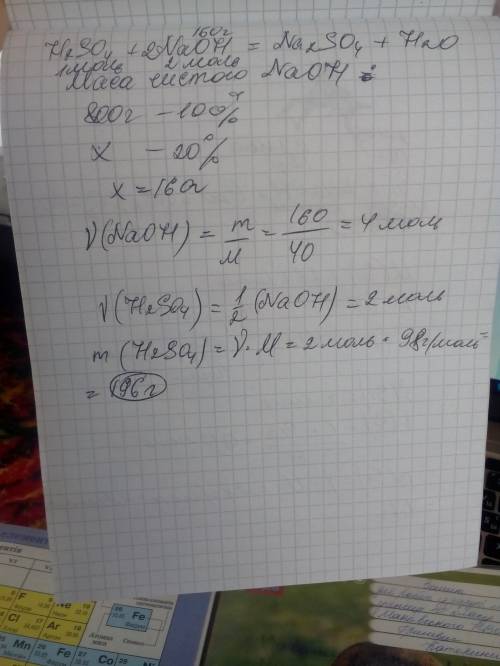 160г
H2SO4 + 2NaOH = Na2SO4 + H2O
1моль 2 моль
Маса чистого NaOH :
800г - 100%
x - 20%
x = 160г
ν(NaOH) = m/M = 160/40 = 4 моль
ν(H2SO4) = 1/2 (NaOH) = 2 моль
m (H2SO4) = ν·M = 2 моль · 98г/моль =
= 196 г
F
Ne
Cl
Ar
Mn
Fe
Co
26
Fe
Атомна
маса